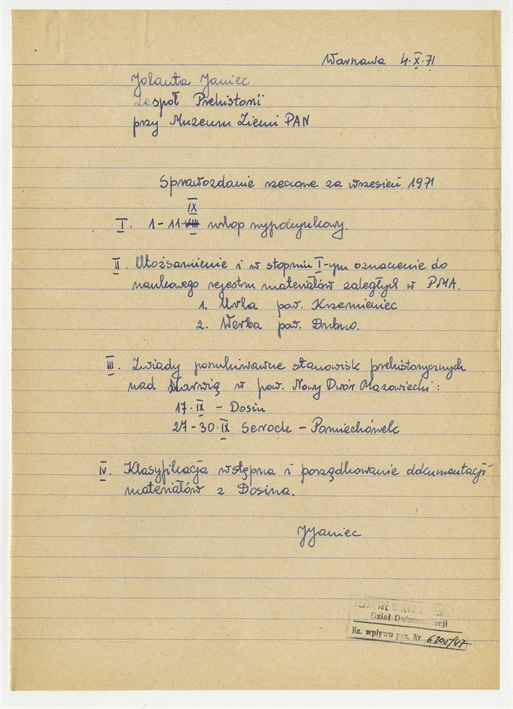 Warszawa 4.X.71
Jolanta Janiec
Zespół Prehistorii
przy Muzeum Ziemi PAN
Sprawozdanie rzeczowe za wrzesień 1971
IX
I. 1-11 VIII urlop wypoczynkowy.
II. Utożsamienie i w stopniu I-ym oznaczenie do
naukowego rejestru materiałów zaległych w PMA.
1. Urla pow. Krzemieniec
2. Werba pow. Dubno.
III. Zwiady poszukiwawcze stanowisk prehistorycznych
nad Narwią w pow. Nowy Dwór Mazowiecki:
17.IX - Dosin
27-30.IX Serock - Pomiechówek
IV. Klasyfikacja wstępna i porządkowanie dokumentacji
materiałów z Dosina.
JJaniec
Dział Dokumentacji
Ks. wpływu poz. Nr